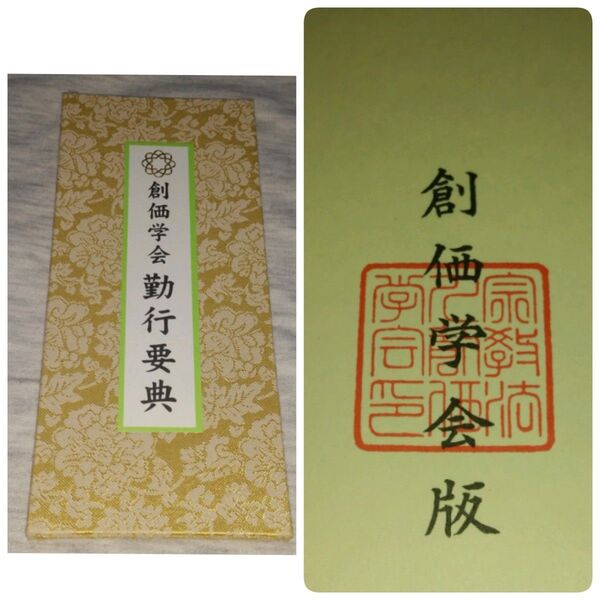 創価学会
勤行要典
創価学会版
宗教法
人創価
学会印